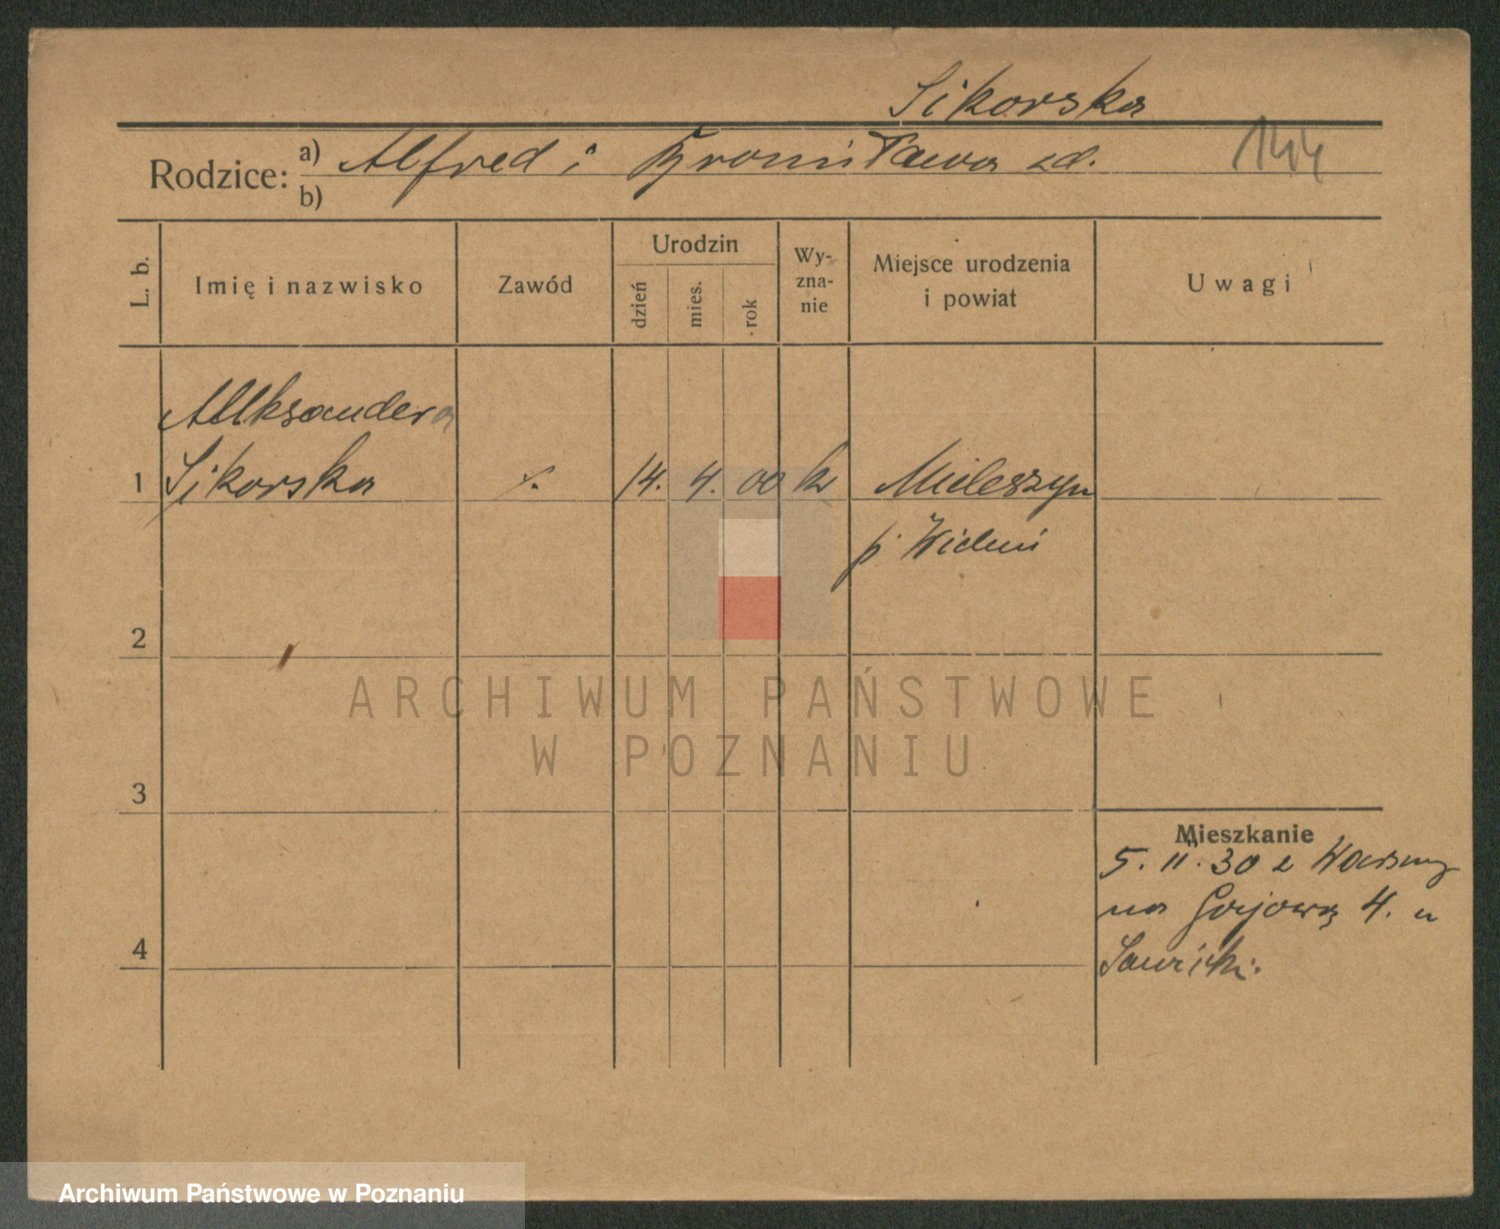 Sikorska
Rodzice: a) Alfred i Bronisława zd. 144
b)
L. b.
Imię i nazwisko
Zawód
Urodzin
dzień
mies.
rok
Wy-
zna-
nie
Miejsce urodzenia
i powiat
Uwagi
Aleksandera
1 Sikorska 14. 4. 00 Mieleszyn
p. Wieluń
2
3
4
Mieszkanie
5. II. 30 z Warszawy
na Gajową 4. u
Sawicki.
ARCHIWUM PAŃSTWOWE
W POZNANIU
Archiwum Państwowe w Poznaniu